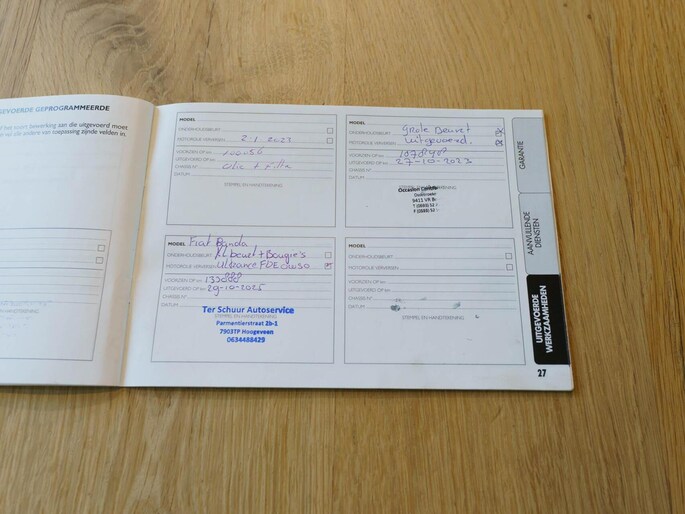 GEVOERDE GEPROGRAMMEERDE
het soort bewerking aan die uitgevoerd moet
alle andere van toepassing zijnde velden in.
MODEL
ONDERHOUDSBEURT
MOTOROLIE VERVERSEN 2-1-2023
VOORZIEN OP km 100056
UITGEVOERD OP
CHASSIS N° Olie + Filter
DATUM
STEMPEL EN HANDTEKENING
MODEL
ONDERHOUDSBEURT Grote Beurt
MOTOROLIE VERVERSEN uitgevoerd.
VOORZIEN OP km 107848
UITGEVOERD OP km 27-10-2023
CHASSIS N°
DATUM
STEMPEL EN HANDTEKENING
Occasion
9411 VR
T (0593) 52
F (0593) 52
MODEL Fiat Panda
ONDERHOUDSBEURT Kl beurt + Bougie's
MOTOROLIE VERVERSEN Ultrance FDE 0W30
VOORZIEN OP km 133888
UITGEVOERD OP km 29-10-2025
CHASSIS N°
DATUM
Ter Schuur Autoservice
STEMPEL EN HANDTEKENING
Parmentierstraat 2b-1
7903TP Hoogeveen
0634488429
MODEL
ONDERHOUDSBEURT
MOTOROLIE VERVERSEN
VOORZIEN OP km
UITGEVOERD OP km
CHASSIS N°
DATUM
STEMPEL EN HANDTEKENING
GARANTIE
AANVULLENDE
DIENSTEN
UITGEVOERDE
WERKZAAMHEDEN
27